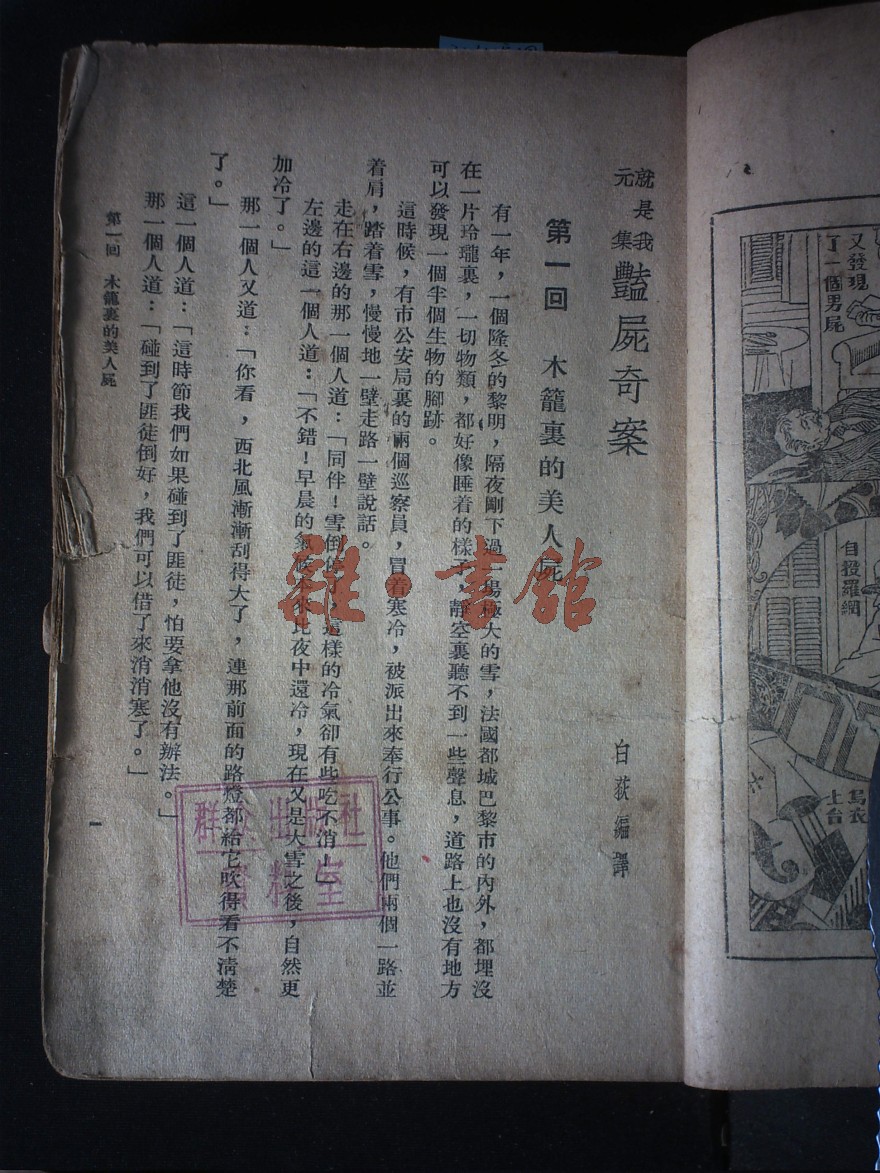 就是我
元集
豔屍奇案
白荻編譯
第一回　木籠裏的美人屍
有一年，一個隆冬的黎明，隔夜剛下過一場極大的雪，法國都城巴黎市的內外，都埋沒
在一片玲瓏裏，一切物類，都好像睡着的樣子，靜空裏聽不到一些聲息，道路上也沒有地方
可以發現一個半個生物的腳跡。
這時候，有市公安局裏的兩個巡察員，冒着寒冷，被派出來奉行公事。他們兩個一路並
着肩，踏着雪，慢慢地一壁走路一壁說話。
走在右邊的那一個人道：「同伴！雪倒停了，這樣的冷氣卻有些吃不消！」
左邊的這一個人道：「不錯！早晨的氣候本來比夜中還冷，現在又是大雪之後，自然更
加冷了。」
那一個人又道：「你看，西北風漸漸刮得大了，連那前面的路燈都給它吹得看不清楚
了。」
這一個人道：「這時節我們如果碰到了匪徒，怕要拿他沒有辦法。」
那一個人道：「碰到了匪徒倒好，我們可以借了來消消寒了。」
第一回　木籠裏的美人屍
一
雜·書館
群众出版社
資料室
又發現
了一個男屍
自投羅網
烏衣
上台